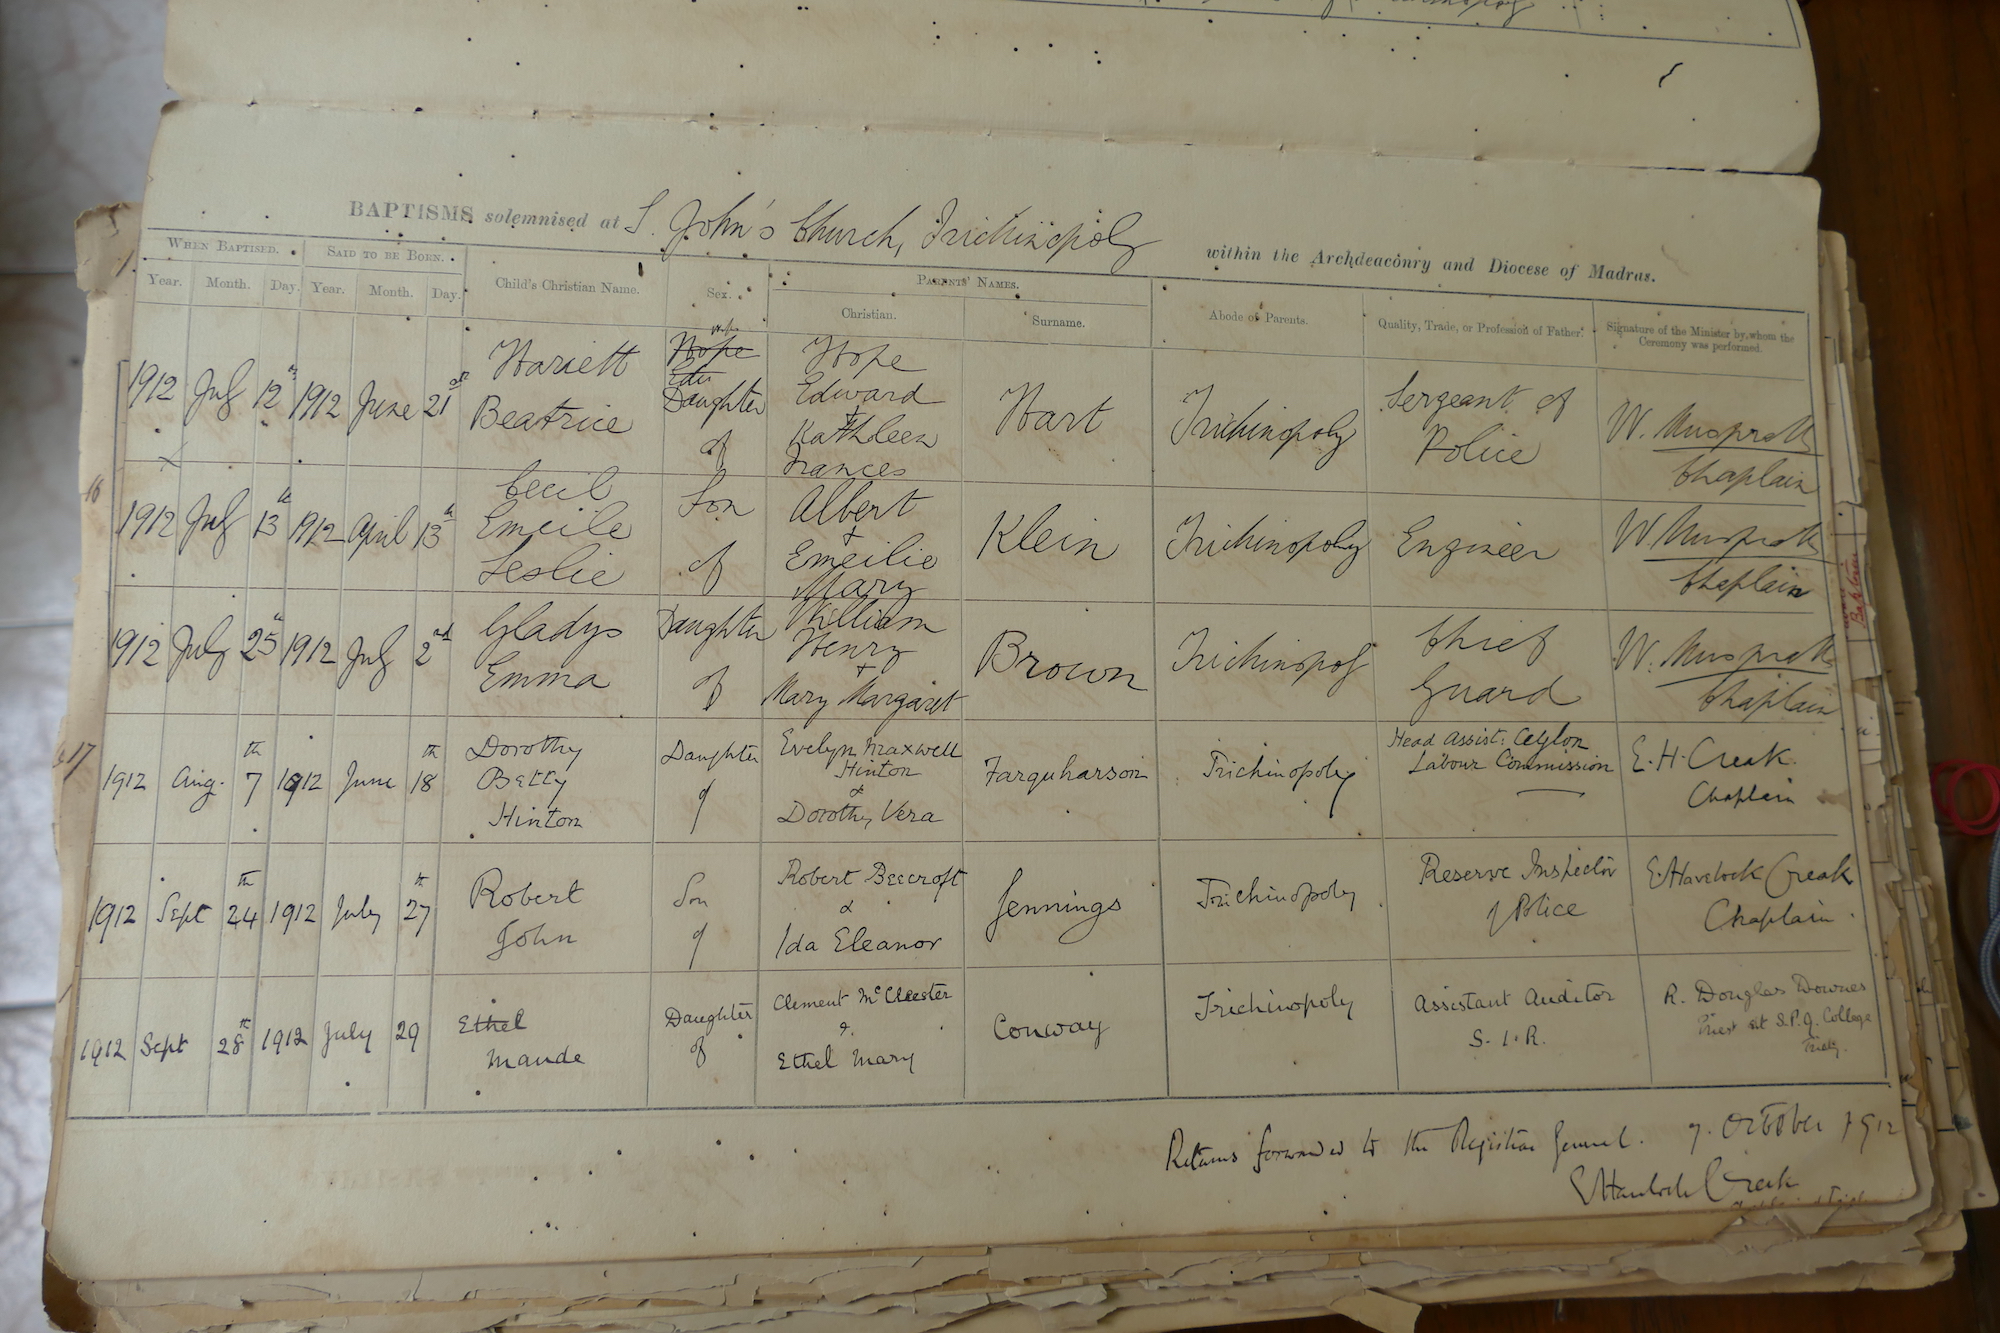 BAPTISMS solemnised at S. John's Church, Trichinopoly within the Archdeaconry and Diocese of Madras.
WHEN BAPTISED. SAID TO BE BORN. Child's Christian Name. Sex. PARENTS' NAMES. Abode of Parents. Quality, Trade, or Profession of Father. Signature of the Minister by whom the Ceremony was performed.
Year. Month. Day. Year. Month. Day. Christian. Surname.
1912 July 12th 1912 June 21st Hariett Beatrice Hope Edw Daughter of Hope Edward + Kathleen Frances Hart Trichinopoly Sergeant of Police W. Muspratt Chaplain
16
1912 July 13th 1912 April 13th Cecil Emeile Leslie Son of Albert + Emeilie Mary Klein Trichinopoly Engineer W. Muspratt Chaplain
1912 July 25th 1912 July 2nd Gladys Emma Daughter of William Henry + Mary Margaret Brown Trichinopoly Chief Guard W. Muspratt Chaplain
17
1912 Aug. 7th 1912 June 18th Dorothy Betty Hinton Daughter of Evelyn Maxwell Hinton & Dorothy Vera Farquharson Trichinopoly Head Assist: Ceylon Labour Commission E. H. Creak. Chaplain
1912 Sept 24th 1912 July 27th Robert John Son of Robert Beecroft & Ida Eleanor Jennings Trichinopoly Reserve Inspector of Police E. Havelock Creak Chaplain.
1912 Sept 28th 1912 July 29 Ethel Maude Daughter of Clement & Ethel Mary Conway Trichinopoly Assistant Auditor S. I. R. R. Douglas Downes Priest at S.P.G. College Trichy.
Returns forwarded to the Registrar General. 7. October 1912
E Havelock Creak